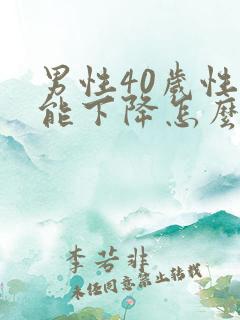 男性40岁性
能下降怎麽
李若非
未经同意禁止转载